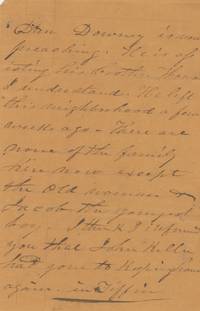 Dan Downy is now
preaching. He is as
isting his brother
I understand. He left
this neighborhood a few
weeks ago. There are
none of the family
here now except
the old woman &
Jacob the youngest
boy. I think I informed
you that John
had gone to Keeping house
again. in Tiffin